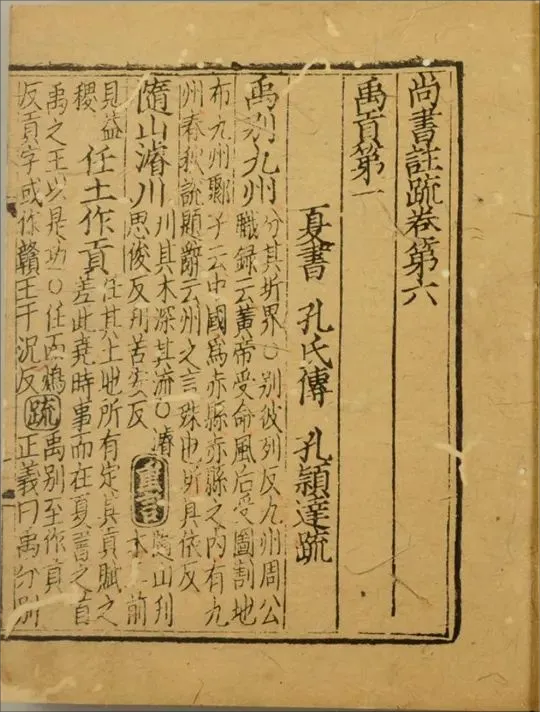 尚書註疏卷第六
禹貢第一
夏書 孔氏傳 孔穎達疏
禹別九州 分其圻界○別彼列反九州周公
職録云黃帝受命風后受圖割地
布九州鄹子云中國爲赤縣赤縣之内有九
州春秋說題辭云州之言殊也圻具依反
隨山濬川 刊其木深其流○濬
思俊反刊苦安反 重言 隨山刊
木二前
見益
稷 任土作貢 任其土地所有定其貢賦之
差此堯時事而在夏書之首
禹之王以是功○任而鴆
反貢字或作贛王于況反 疏 禹別至作貢
正義曰禹分別